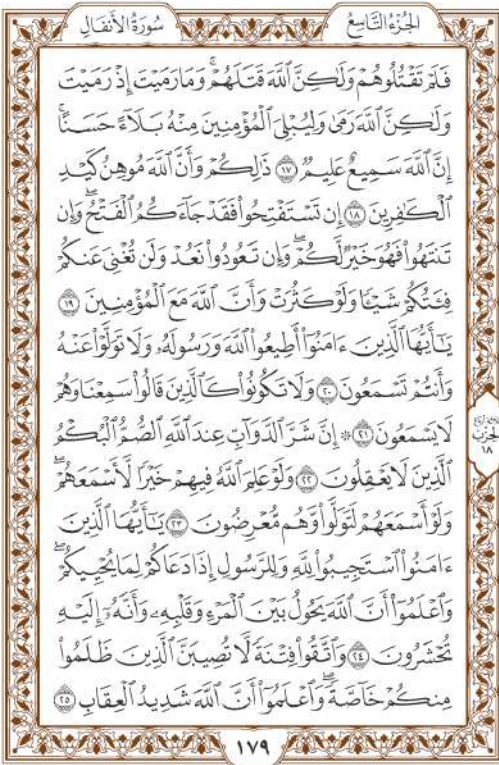 الجُزْءُ التَّاسِعُ
سُورَةُ الأَنفَالِ
فَلَمْ تَقْتُلُوهُمْ وَلَٰكِنَّ ٱللَّهَ قَتَلَهُمْ ۚ وَمَا رَمَيْتَ إِذْ رَمَيْتَ
وَلَٰكِنَّ ٱللَّهَ رَمَىٰ وَلِيُبْلِيَ ٱلْمُؤْمِنِينَ مِنْهُ بَلَآءً حَسَنًا ۚ
إِنَّ ٱللَّهَ سَمِيعٌ عَلِيمٌ ١٧ ذَٰلِكُمْ وَأَنَّ ٱللَّهَ مُوهِنُ كَيْدِ
ٱلْكَٰفِرِينَ ١٨ إِن تَسْتَفْتِحُوا۟ فَقَدْ جَآءَكُمُ ٱلْفَتْحُ ۖ وَإِن
تَنتَهُوا۟ فَهُوَ خَيْرٌ لَّكُمْ ۖ وَإِن تَعُودُوا۟ نَعُدْ وَلَن تُغْنِيَ عَنكُمْ
فِئَتُكُمْ شَيْـًٔا وَلَوْ كَثُرَتْ وَأَنَّ ٱللَّهَ مَعَ ٱلْمُؤْمِنِينَ ١٩
يَٰٓأَيُّهَا ٱلَّذِينَ ءَامَنُوٓا۟ أَطِيعُوا۟ ٱللَّهَ وَرَسُولَهُۥ وَلَا تَوَلَّوْا۟ عَنْهُ
وَأَنتُمْ تَسْمَعُونَ ٢٠ وَلَا تَكُونُوا۟ كَٱلَّذِينَ قَالُوا۟ سَمِعْنَا وَهُمْ
لَا يَسْمَعُونَ ٢١ ۞ إِنَّ شَرَّ ٱلدَّوَآبِّ عِندَ ٱللَّهِ ٱلصُّمُّ ٱلْبُكْمُ
ٱلَّذِينَ لَا يَعْقِلُونَ ٢٢ وَلَوْ عَلِمَ ٱللَّهُ فِيهِمْ خَيْرًا لَّأَسْمَعَهُمْ ۖ
وَلَوْ أَسْمَعَهُمْ لَتَوَلَّوا۟ وَّهُم مُّعْرِضُونَ ٢٣ يَٰٓأَيُّهَا ٱلَّذِينَ
ءَامَنُوا۟ ٱسْتَجِيبُوا۟ لِلَّهِ وَلِلرَّسُولِ إِذَا دَعَاكُمْ لِمَا يُحْيِيكُمْ ۖ
وَٱعْلَمُوٓا۟ أَنَّ ٱللَّهَ يَحُولُ بَيْنَ ٱلْمَرْءِ وَقَلْبِهِۦ وَأَنَّهُۥٓ إِلَيْهِ
تُحْشَرُونَ ٢٤ وَٱتَّقُوا۟ فِتْنَةً لَّا تُصِيبَنَّ ٱلَّذِينَ ظَلَمُوا۟
مِنكُمْ خَآصَّةً ۖ وَٱعْلَمُوٓا۟ أَنَّ ٱللَّهَ شَدِيدُ ٱلْعِقَابِ ٢٥
الحزب
١٨
١٧٩